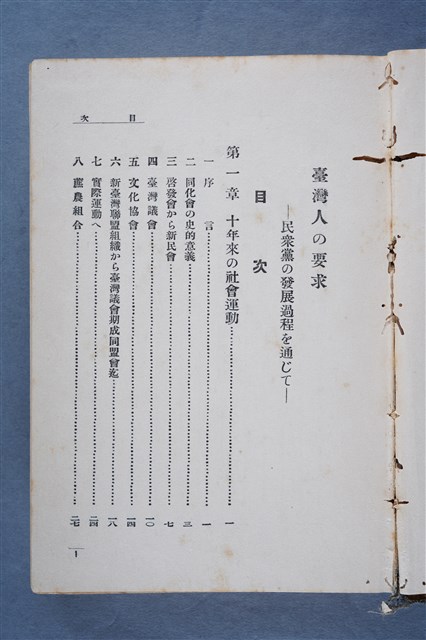 臺灣人の要求
―民衆黨の發展過程を通じて―
目次
第一章 十年來の社會運動……一
一 序言……一
二 同化會の史的意義……三
三 啓發會から新民會……七
四 臺灣議會……一〇
五 文化協會……一四
六 新臺灣聯盟組織から臺灣議會期成同盟會迄……一八
七 實際運動へ……二四
八 蔗農組合……二七
目次
1